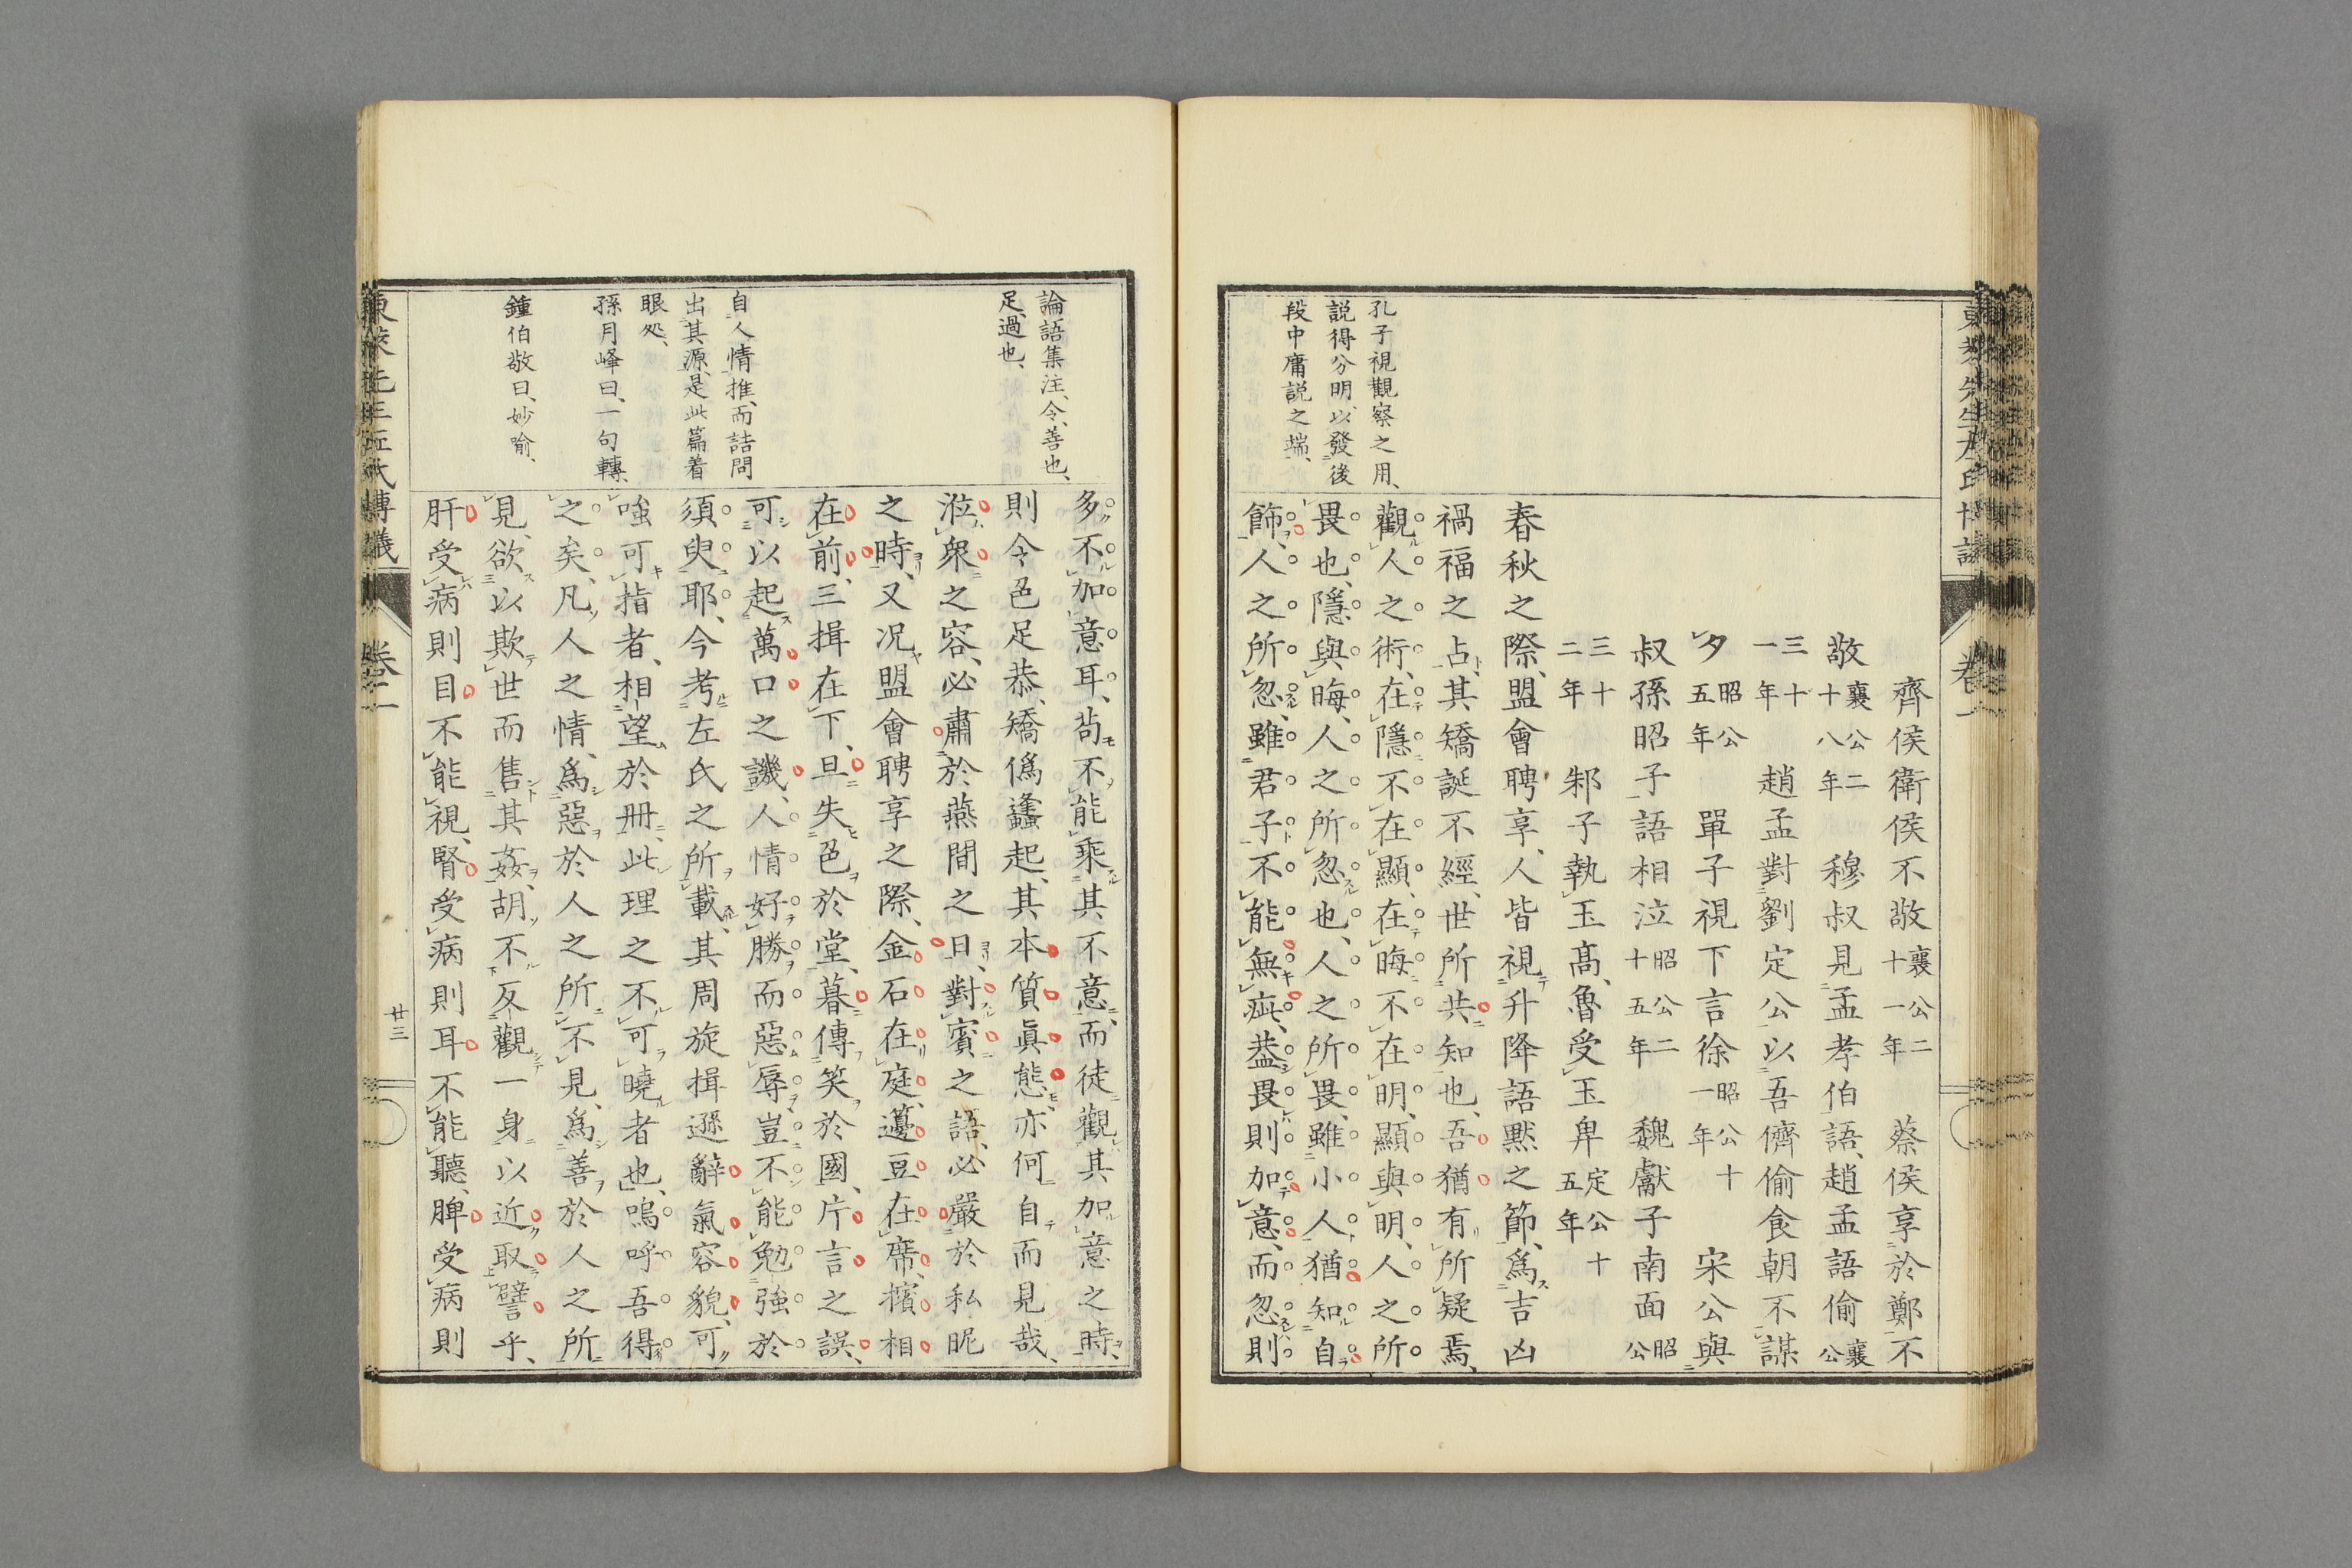 孔子視觀察之用、
説得分明、以發後
段中庸説之端、
齊侯衛侯不敬襄公二十一年　蔡侯享於鄭不
敬襄公二十八年　穆叔見孟孝伯語、趙孟語偷襄公
三十一年　趙孟對劉定公以吾儕偷食朝不謀
夕昭公五年　單子視下言徐昭公十一年　宋公與
叔孫昭子語相泣昭公二十五年　魏獻子南面昭公
三十二年　邾子執玉高、魯受玉卑定公十五年
春秋之際、盟會聘享、人皆視升降語默之節、爲吉凶
禍福之占、其矯誕不經、世所共知也、吾猶有所疑焉、
觀人之術、在隱不在顯、在晦不在明、顯與明、人之所
畏也、隱與晦、人之所忽也、人之所畏、雖小人猶知自
飾、人之所忽、雖君子不能無疵、葢畏則加意、而忽則
論語集注、令、善也、
足、過也、
自人情推、而詰問
出其源、是此篇着
眼処、
孫月峰曰、一句轉、
鍾伯敬曰、妙喻、
多不加意耳、苟不能乘其不意、而徒觀其加意之時、
則令色足恭、矯僞蠭起、其本質眞態、亦何自而見哉、
涖衆之容、必肅於燕間之日、對賓之語、必嚴於私昵
之時、又况盟會聘享之際、金石在庭、籩豆在席、擯相
在前、三揖在下、旦失色於堂、暮傳笑於國、片言之誤、
可以起萬口之譏、人情好勝而惡辱、豈不能勉強於
須臾耶、今考左氏之所載、其周旋揖遜辭氣容貌、可
嗤可指者、相望於冊、此理之不可曉者也、嗚呼吾得
之矣、凡人之情、爲惡於人之所不見、爲善於人之所
見、欲以欺世而售其姦、胡不反觀一身以近取譬乎、
肝受病則目不能視、腎受病則耳不能聽、脾受病則
東萊先生左氏博議
卷二
廿三